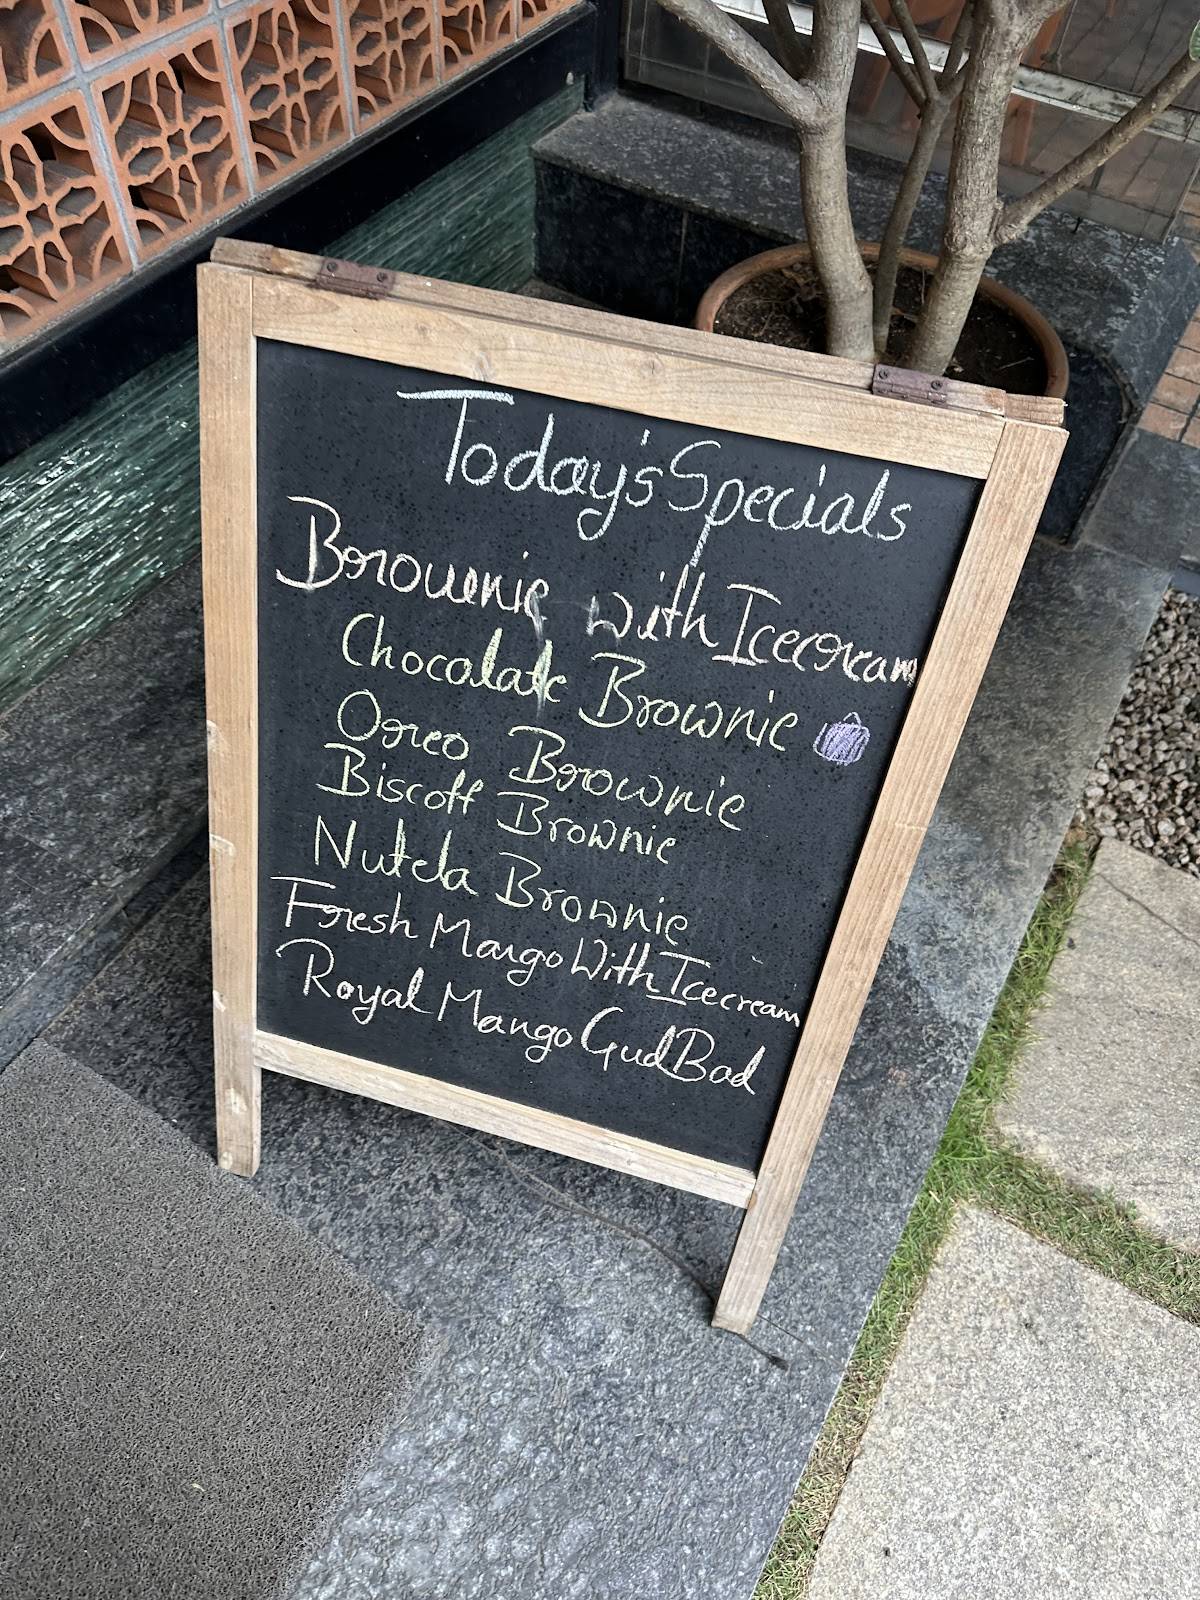 Today's Specials
Brownie with Icecream
Chocolate Brownie
Oreo Brownie
Biscoff Brownie
Nutela Brownie
Fresh Mango With Icecream
Royal Mango GudBad